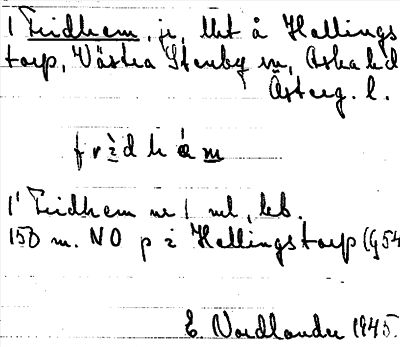 1 Fridhem, je, lht å Hellings
torp, Västra Stenby sn, Aska hd
Österg. l.
frìdhám
1 Fridhem nr 1 ml, hb.
150 m. NO p i Hellingstorp (G54
E. Nordlander 1945.